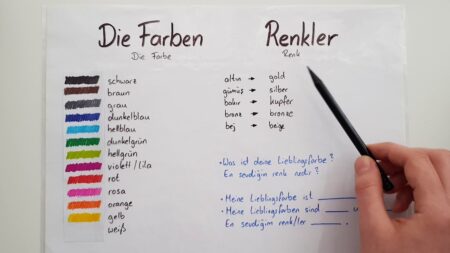 Die Farben
Die Farbe
schwarz
braun
grau
dunkelblau
hellblau
dunkelgrün
hellgrün
violett / lila
rot
rosa
orange
gelb
weiß
Renkler
Renk
altın → gold
gümüş → silber
bakır → kupfer
bronz → bronze
bej → beige
• Was ist deine Lieblingsfarbe?
En sevdiğin renk nedir?
• Meine Lieblingsfarbe ist
• Meine Lieblingsfarben sind
En sevdiğim renk/ler